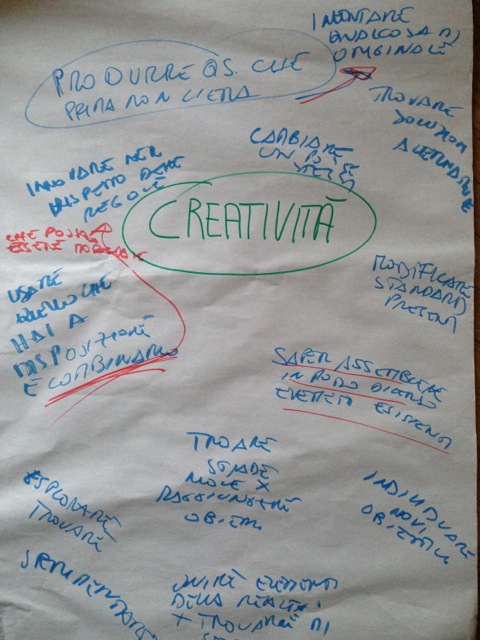 INVENTARE
QUALCOSA DI
ORIGINALE
PRODURRE QS. CHE
PRIMA NON C'ERA
TROVARE
SOLUZIONI
ALTERNATIVE
CAMBIARE
UN PO'
INNOVARE NEL
RISPETTO DELLE
REGOLE
CHE POSSONO
ESSERE MODIFICATE
CREATIVITÀ
USARE
QUELLO CHE
HAI A
DISPOSIZIONE
E COMBINARLO
MODIFICARE
STANDARD
PRESENTI
SAPER ASSEMBLARE
IN MODO DIVERSO
ELEMENTI ESISTENTI
TROVARE
STRADE
NUOVE X
RAGGIUNGERE
OBIETTIVI
ESPLORARE
TROVARE
INDIVIDUARE
NUOVI
OBIETTIVI
UNIRE ELEMENTI
DELLA REALTÀ
X TROVARNE DI